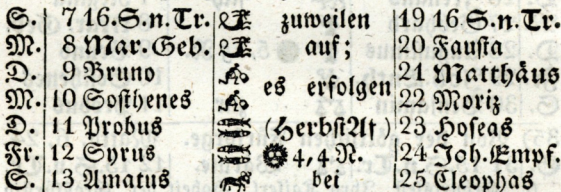 S. 7 16.S.n.Tr. zuweilen 19 16.S.n.Tr.
M. 8 Mar.Geb. auf; 20 Fausta
D. 9 Bruno 21 Matthäus
M. 10 Sosthenes es erfolgen 22 Moriz
D 11 Probus (HerbstAt) 23 Hoseas
Fr. 12 Syrus 4,4 N. 24 Joh.Empf.
S. 13 Amatus bei 25 Cleophas